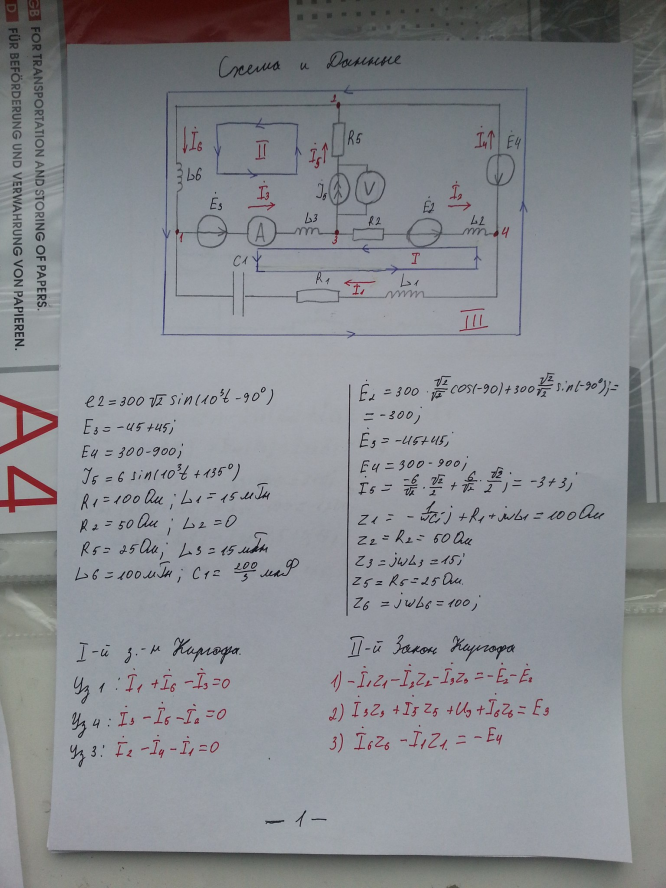 GB FOR TRANSPORTATION AND STORING OF PAPERS.
D FÜR BEFÖRDERUNG UND VERWAHRUNG VON PAPIEREN.
A4
Схема и Данные
1
İ6
II
L6
İ5
R5
İ4
Ė4
J5
V
Ė3
İ3
A
L3
R2
Ė2
İ2
L2
1
3
4
C1
I
R1
İ1
L1
III
e2=300√2 sin(10³t-90°)
E3=-45+45j
E4=300-900j
J5=6 sin(10³t+135°)
R1=100Ом; L1=15мГн
R2=50Ом; L2=0
R5=25Ом; L3=15мГн
L6=100мГн; C1=200/3 мкФ
Ė2=300·√2/√2 cos(-90)+300 √2/√2 sin(-90°)j=
=-300j
Ė3=-45+45j
E4=300-900j
İ5=-6/√2·√2/2+6/√2·√2/2 j=-3+3j
Z1=-1/ωC j+R1+jωL1=100Ом
Z2=R2=50Ом
Z3=jωL3=15j
Z5=R5=25Ом
Z6=jωL6=100j
I-й з.-н Кирхгофа.
Уз 1: İ1+İ6-İ3=0
Уз 4: İ3-İ5-İ2=0
Уз 3: İ2-İ4-İ1=0
II-й Закон Кирхгофа
1) -İ1Z1-İ2Z2-İ3Z3=-Ė2-Ė3
2) İ3Z3+İ5Z5+U3+İ6Z6=E3
3) İ6Z6-İ1Z1=-E4
- 1 -